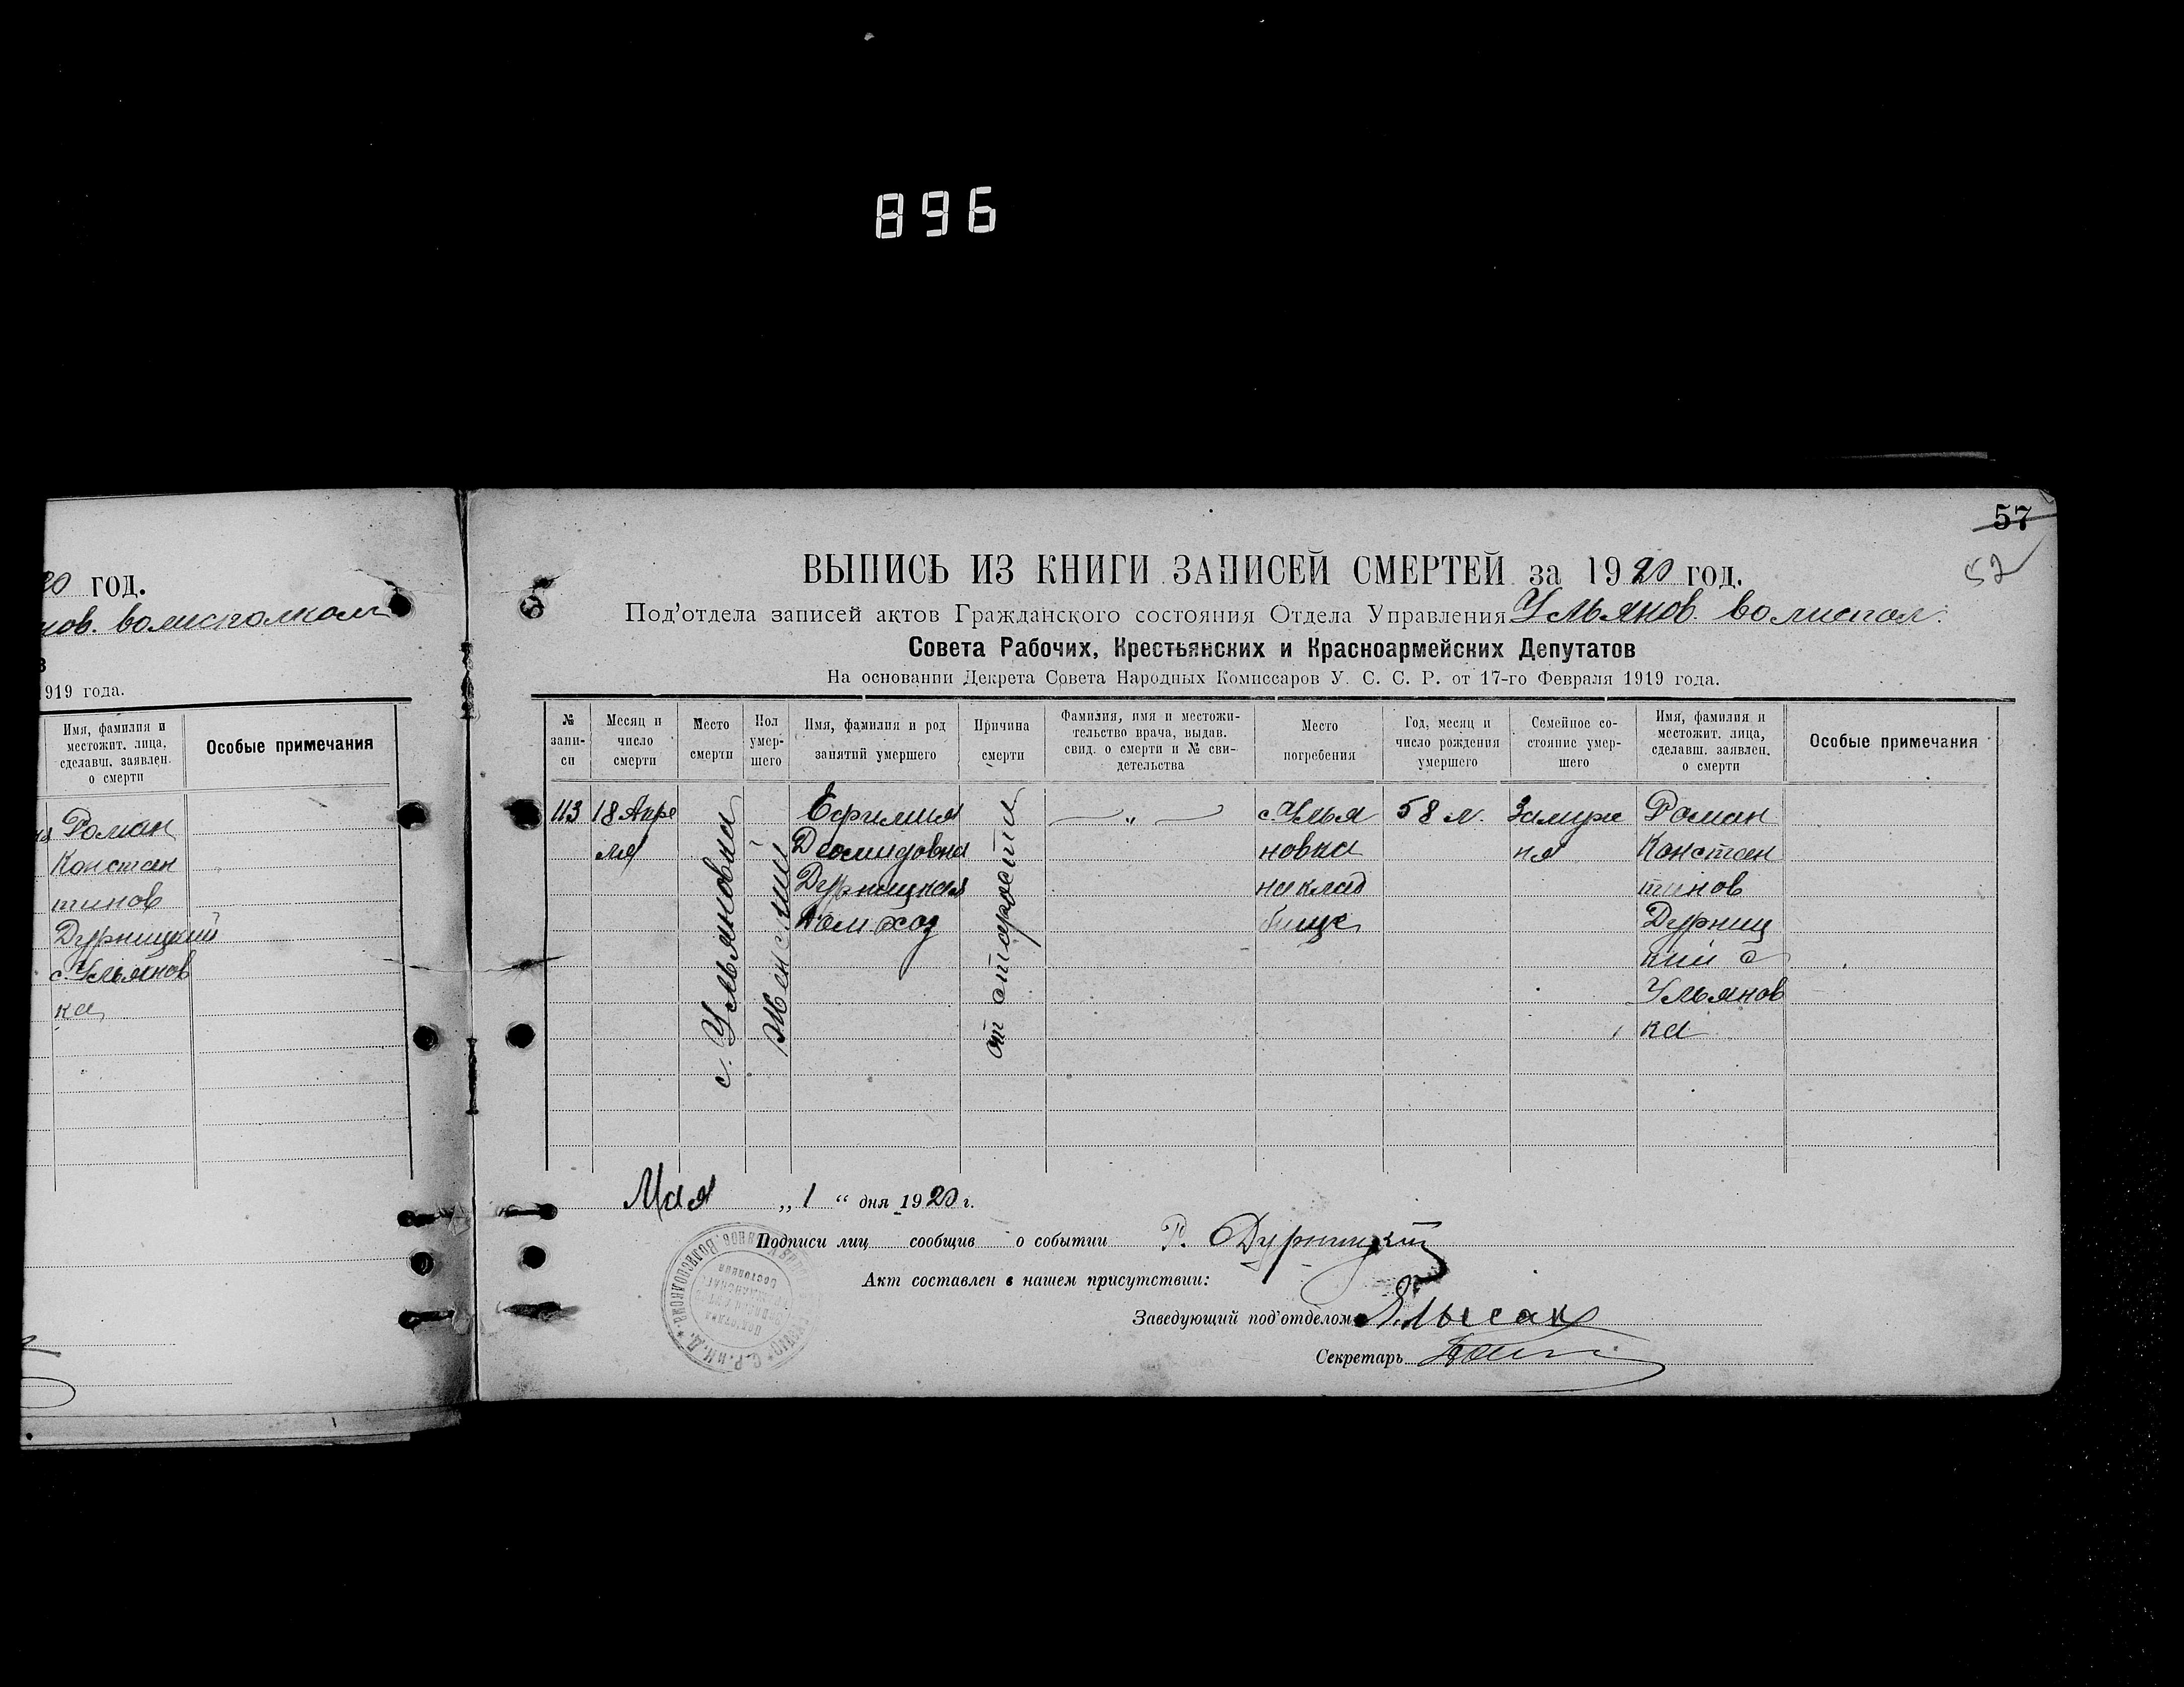 896
20 год.
нов. волисполком
в
1919 года.
Имя, фамилия и
местожит. лица,
сделавш. заявлен.
о смерти
Особые примечания
Роман
Констан
тинов
Дурницкий
с. Ульянов
ка
57
57
ВЫПИСЬ ИЗ КНИГИ ЗАПИСЕЙ СМЕРТЕЙ за 1920 год.
Под'отдела записей актов Гражданского состояния Отдела Управления Ульянов. волиспол.
Совета Рабочих, Крестьянских и Красноармейских Депутатов
На основании Декрета Совета Народных Комиссаров У. С. С. Р. от 17-го Февраля 1919 года.
№
запи-
си
Месяц и
число
смерти
Место
смерти
Пол
умер-
шего
Имя, фамилия и род
занятий умершего
Причина
смерти
Фамилия, имя и местожи-
тельство врача, выдав.
свид. о смерти и № сви-
детельства
Место
погребения
Год, месяц и
число рождения
умершего
Семейное со-
стояние умер-
шего
Имя, фамилия и
местожит. лица,
сделавш. заявлен.
о смерти
Особые примечания
113
18 Апре
ля
с. Ульяновка
Женский
Ефимия
Деомидовна
Дурницкая
Дом хоз
от старости
— „ —
с Улья
новка
на клад
бище
58 л.
Замуж
няя
Роман
Констан
тинов
Дурниц
кий с
Ульянов
ка
Мая „ 1 “ дня 1920 г.
Подписи лиц сообщив о событии Р. Дурницкий
Акт составлен в нашем присутствии:
Заведующий под'отделом Лысак
Секретарь